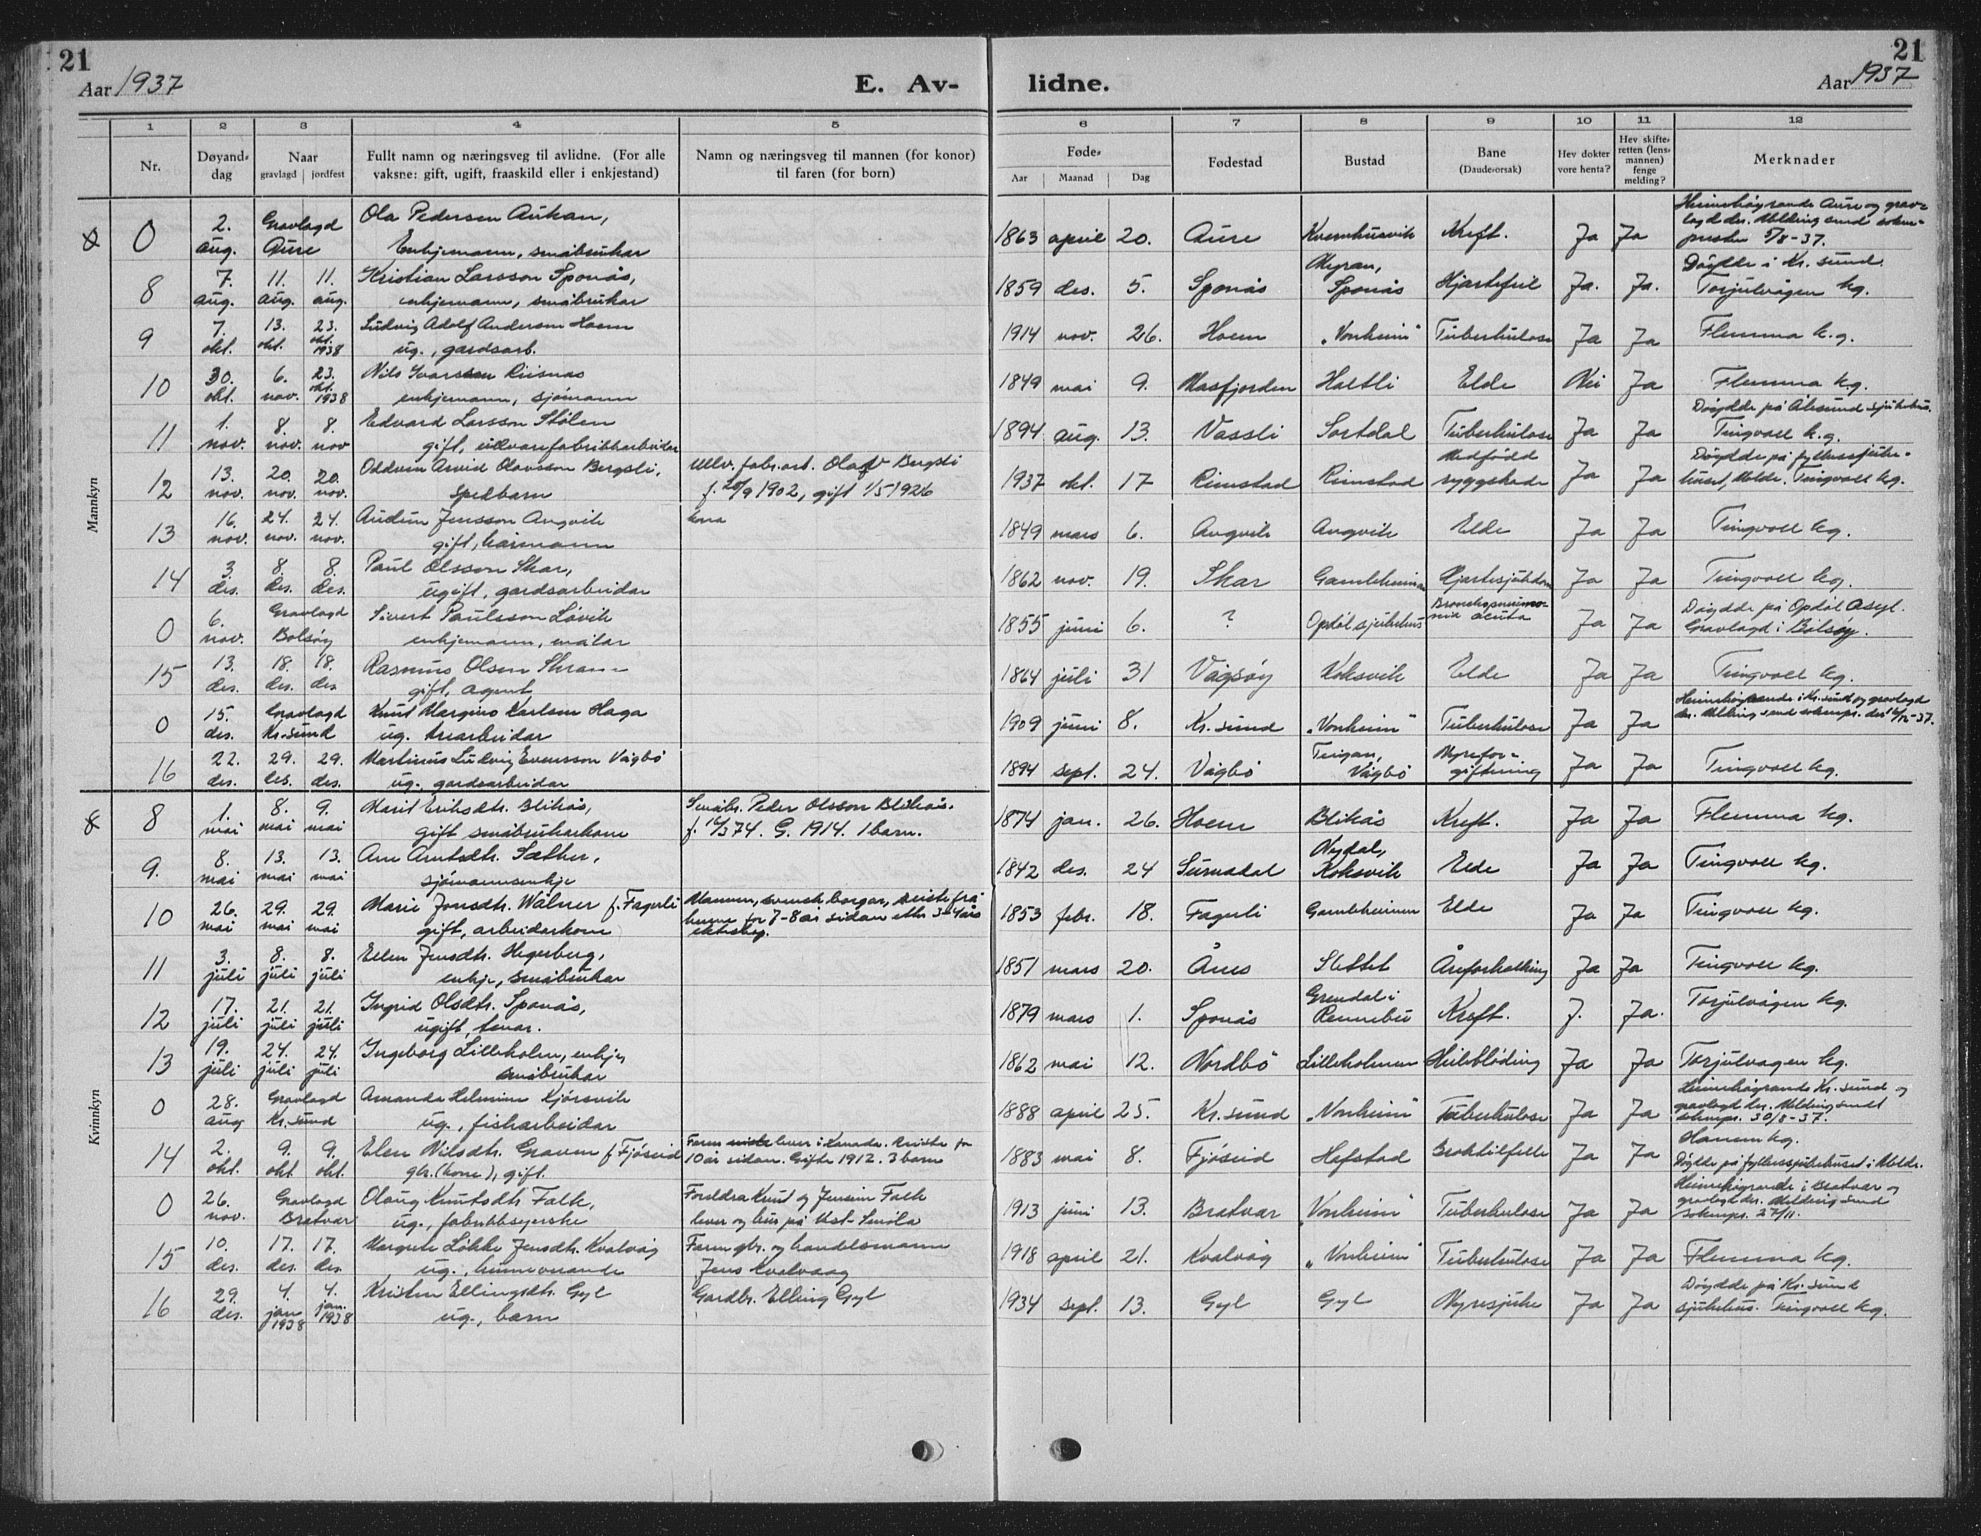 21
21
Aar 1937
E. Av-
lidne.
Aar 1937
1 2 3 4 5
6 7 8 9 10 11 12
Nr.
Døyand-
dag
Naar
gravlagd jordfest
Fullt namn og næringsveg til avlidne. (For alle
vaksne: gift, ugift, fraaskild eller i enkjestand)
Namn og næringsveg til mannen (for konor)
til faren (for born)
Føde-
Aar Maanad Dag
Fødestad
Bustad
Bane
(Daude-orsak)
Hev dokter
vore henta?
Hev skifte-
retten (lens-
mannen)
fenge
melding?
Merknader
Mannkyn
0 2. aug. Gravlagd Aure Ola Pedersen Aukan,
Enkjemann, småbrukar
1863 april 20. Aure Kvernhusvik Kreft. Ja Ja
8/8-37.
8 7. aug. 11. aug. 11. aug. Kristian Larsson Sponås,
enkjemann, småbrukar
1859 des. 5. Sponås Myran, Sponås Hjartefeil Ja. Ja. Døydde i Kr. sund.
Torjulvågen kg.
9 7. okt. 13. okt. 23. okt. 1938 Ludvig Adolf Andersen Hoem
ug., gardsarb.
1914 nov. 26. Hoem "Vonheim" Tuberkulose Ja Ja Flemma k.g.
10 30. okt. 6. nov. 23. okt. 1938 Nils Ivarsson
enkjemann, sjømann
1849 mai 9. Masfjorden Holtli Elde Nei Ja Flemma kg.
11 1. nov. 8. nov. 8. nov Edvard Larsson Stølen
gift, ullvarefabrikkarbeidar
1894 aug. 13. Vassli Sortdal Tuberkulose Ja Ja Døydde på Ålesund sjukehus.
Tingvoll k.g.
12 13. nov. 20. nov. 20. nov. Oddvin Arvid Olavsson Bergsli,
spedbarn
Ullv. fabr.arb. Olav Bergsli
f. 20/9 1902, gift 1/5 1926
1937 okt. 17 Rimstad Rimstad Medfødd ryggskade Ja Ja Døydde på fylkessjuke-
huset, Molde. Tingvoll kg.
13 16. nov. 24. nov. 24. nov. Audun Jensson Angvik
gift, kårmann
kona
1849 mars 6. Angvik Angvik Elde Ja Ja Tingvoll kg.
14 3 des. 8. des. 8. des. Paul Olsson Skar,
ugift, gardsarbeidar
1862 nov. 19. Skar Gamleheimen Hjartesjukdom Ja Ja Tingvoll kg.
0 6. nov. Gravlagd Bolsøy Sivert Paulsson Løvik
enkjemann, målar
1855 juni 6. ? Opdøl sjukehus Bronchopneumo-
nia acuta Ja Ja Døydde på Opdøl Asyl.
Gravlagd i Bolsøy.
15 13. des. 18. des. 18. des Rasmus Olsen Skram
gift, agent
1864 juli 31 Vågsøy Koksvik Elde Ja Ja Tingvoll kg.
0 15. des. Gravlagd Kr. sund Knut Margino Karlsen Haga
ug. trearbeidar
1909 juni 8. Kr. sund "Vonheim" Tuberkulose Ja Ja Heimehøyrande i Kr. sund og gravlagd
16 22. des. 29. des. 29. des. Martinus Ludvig Evensson Vågbø
ug. gardsarbeidar
1894 sept. 24. Vågbø Teigan, Vågbø Nyrefor-
giftning Ja Ja Tingvoll kg.
Kvinnkyn
8 1. mai 8. mai 9. mai Marit Eriksdtr. Blikås,
gift småbrukarkone
Småbr. Peder Olsson Blikås.
G. 1914. 1 barn.
1874 jan. 26. Hoem Blikås Kreft. Ja Ja Flemma kg.
9. 8. mai 13. mai 13. mai Ane Arntsdtr. Sæther,
sjømannsenkje
1842 des. 24 Surnadal Nydal, Koksvik Elde Ja Ja Tingvoll kg.
10 26. mai 29. mai 29. mai Marie Jonsdtr. Walner f. Fagerli
gift, arbeidarkone
Mannen, svensk borgar, reiste frå
henne for 7-8 år sidan etter 3-4 års
ekteskap.
1853 febr. 18. Fagerli Gamleheimen Elde Ja Ja Tingvoll kg.
11 3. juli 8. juli 8. juli Ellen Jensdtr. Hegerberg,
enkje, småbrukar
1851 mars 20. Ånes Slettet Åreforkalking Ja Ja Tingvoll kg.
12 17. juli 21. juli 21. juli Ingrid Olsdtr. Sponås,
ugift, tenar.
1879 mars 1. Sponås Grendal i Rennebu Kreft. J. Ja. Torjulvågen kg.
13 19. juli 24. juli 24. juli Ingeborg Lilleholm, enkje,
småbrukar
1862 mai 12. Nordbø Lilleholmen Heilebløding Ja Ja Torjulvagen kg.
0 28. aug Gravlagd Kr. sund Amanda Helmine Kjørsvik
ug., fiskarbeidar
1888 april 25. Kr. sund "Vonheim" Tuberkulose Ja Ja Heimehøyrande Kr. sund og
gravlagd der. Melding sendt
soknepr. 30/8-37.
14 2. okt. 9. okt 9. okt. Elen Nilsdtr. Graven f. Fjøseid
gbr. (kone), gift.
lever i Kanada. Reiste for
10 år sidan. Gifte 1912. 3 barn
1883 mai 8. Fjøseid Hafstad Ja Ja Hanem kg.
Døydde på fylkessjukehuset i Molde.
0 26. nov. Gravlagd Bratvær Olaug Knutsdtr. Falk,
ug., fabrikksyerske
Foreldra Knut og Jensine Falk
lever og bur på Vest-Smøla
1913 juni 13. Bratvær "Vonheim" Tuberkulose Ja Ja Heimehøyrande i Bratvær og
gravlagd der. Melding send
sokнepr. 27/11.
15 10. des. 17. des. 17. des Margrete Løkke Jensdtr. Kvalvåg
ug., heimeverande
Faren gbr. og handelsmann
Jens Kvalvaag
1918 april 21. Kvalvåg "Vonheim" Tuberkulose Ja Ja Flemma kg.
16 29. des. 4. jan 1938 4. jan. 1938 Kristin Ellingsdtr. Gyl
ug., barn
Gardbr. Elling Gyl
1934 sept. 13. Gyl Gyl Nyresjuke Ja Ja Døydde på Kr. sund
sjukehus. Tingvoll kg.